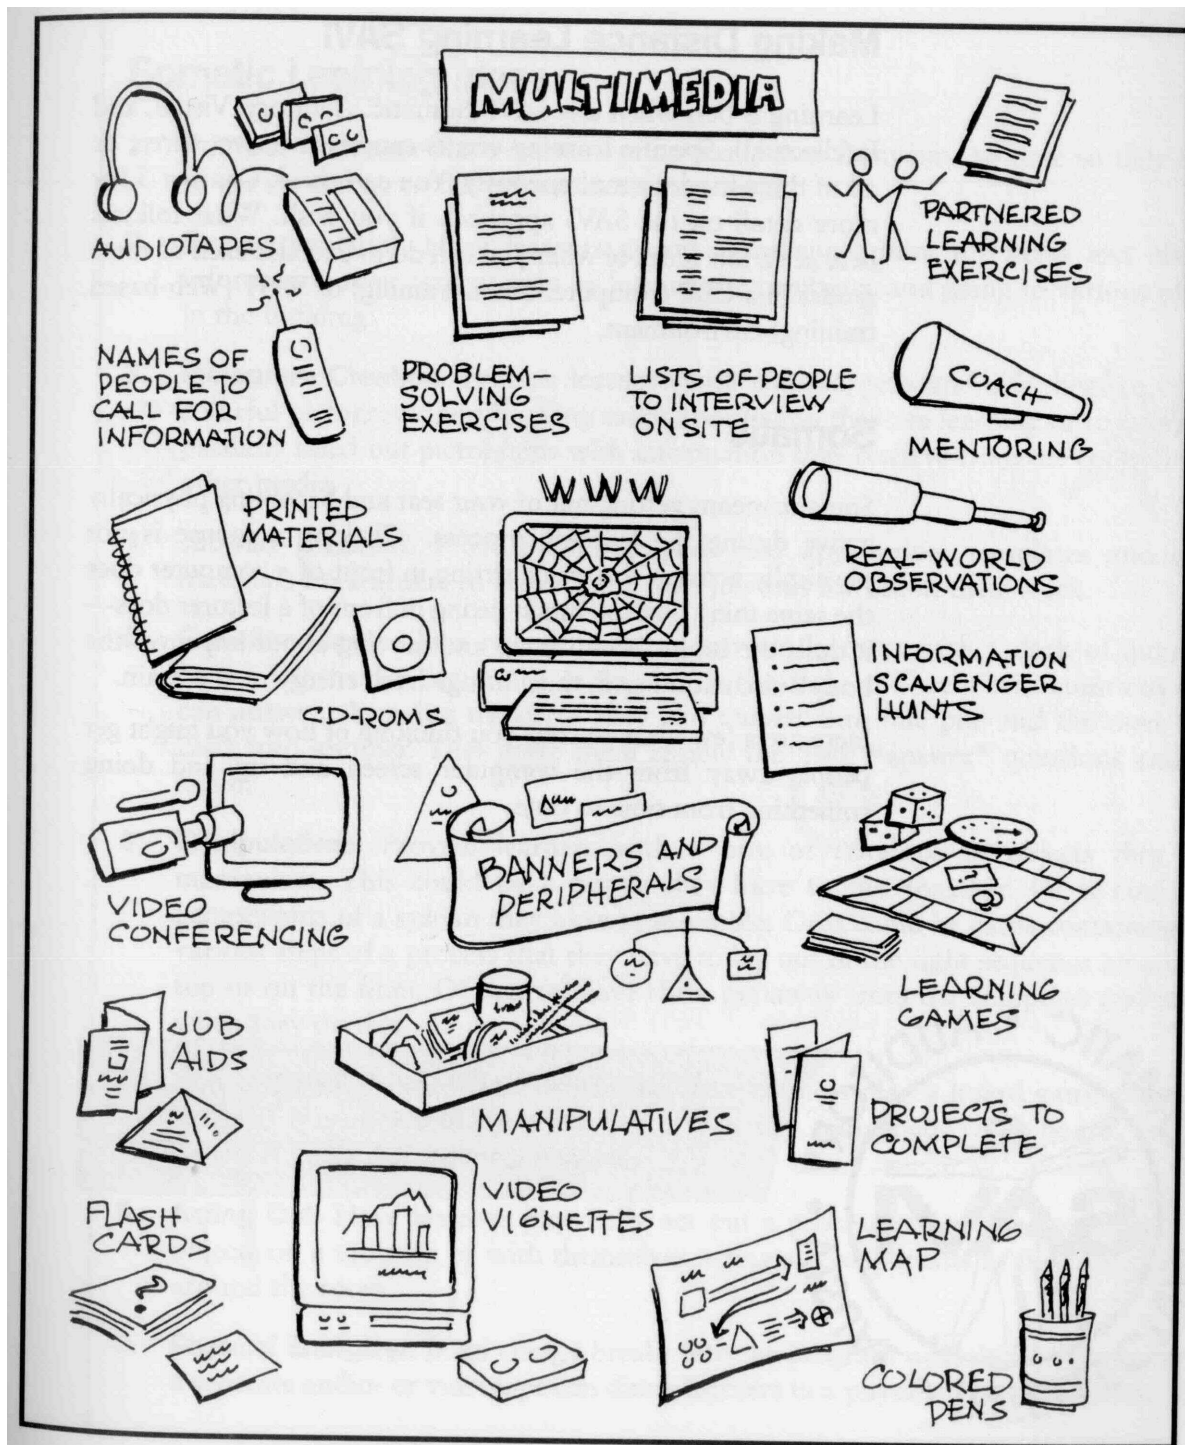 MULTIMEDIA
AUDIOTAPES
PARTNERED
LEARNING
EXERCISES
NAMES OF
PEOPLE TO
CALL FOR
INFORMATION
PROBLEM-
SOLVING
EXERCISES
LISTS OF PEOPLE
TO INTERVIEW
ON SITE
COACH
MENTORING
PRINTED
MATERIALS
WWW
REAL-WORLD
OBSERVATIONS
CD-ROMS
INFORMATION
SCAVENGER
HUNTS
VIDEO
CONFERENCING
BANNERS AND
PERIPHERALS
LEARNING
GAMES
JOB
AIDS
MANIPULATIVES
PROJECTS TO
COMPLETE
FLASH
CARDS
?
VIDEO
VIGNETTES
LEARNING
MAP
COLORED
PENS